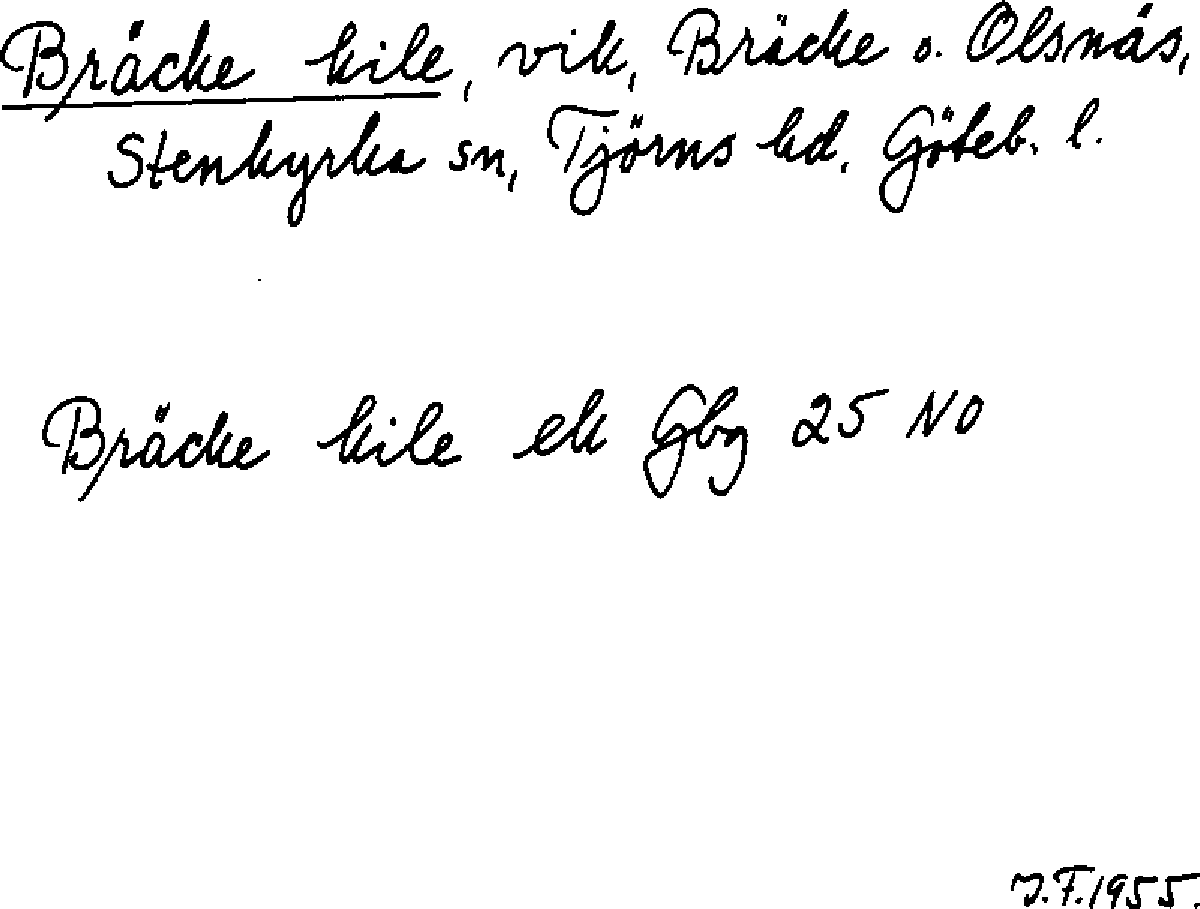 Bräcke kile, vik, Bräcke o. Olsnäs,
Stenkyrka sn, Tjörns hd. Göteb. l.
Bräcke kile ek Gbg 25 NO
J.F.1955.